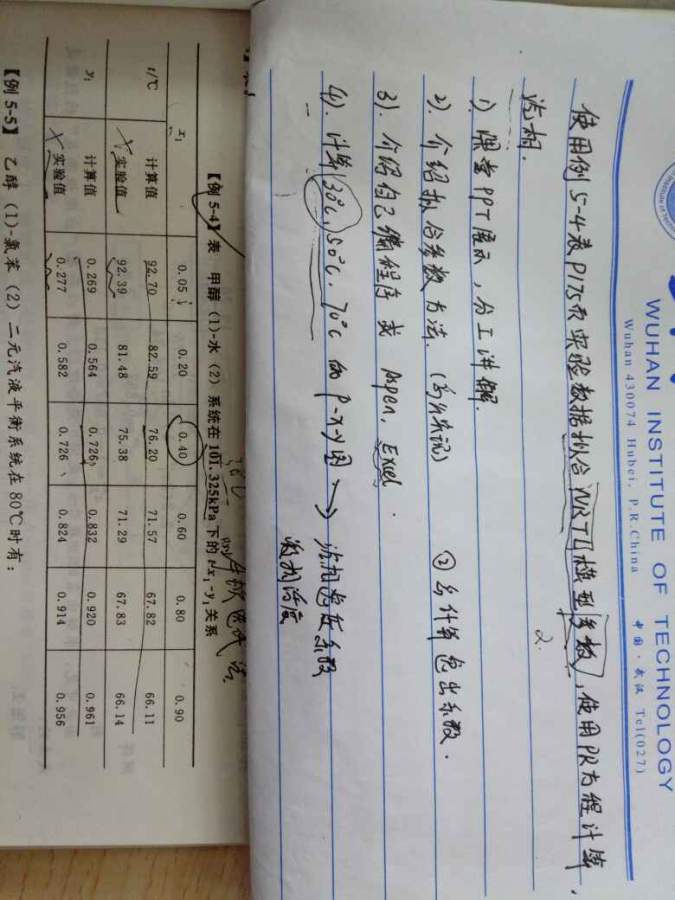 WUHAN INSTITUTE OF TECHNOLOGY
Wuhan 430074 Hubei, P.R.China 中国·武汉 Tel(027)
使用例5-4表P175页实验数据拟合NRTL模型参数,使用PR方程计算
汽相.
2.
1). 课堂PPT展示,分工讲解.
2). 介绍拟合参数方法.
② 多计算 逸出系数.
3). 介绍自己编程序或 Aspen, Excel.
4). 计算30℃, 50℃, 70℃ 的 P-x-y图 → 活度系数
【例5-4】表 甲醇(1)-水(2)系统在101.325kPa下的t/x₁-y₁关系
x₁ 0.05 0.20 0.40 0.60 0.80 0.90
t/℃ 计算值 92.70 82.59 76.20 71.57 67.82 66.11
实验值 92.39 81.48 75.38 71.29 67.83 66.14
y₁ 计算值 0.269 0.564 0.726 0.832 0.920 0.961
实验值 0.277 0.582 0.726 0.824 0.914 0.956
【例5-5】 乙醇(1)-氯苯(2)二元汽液平衡系统在80℃时有: